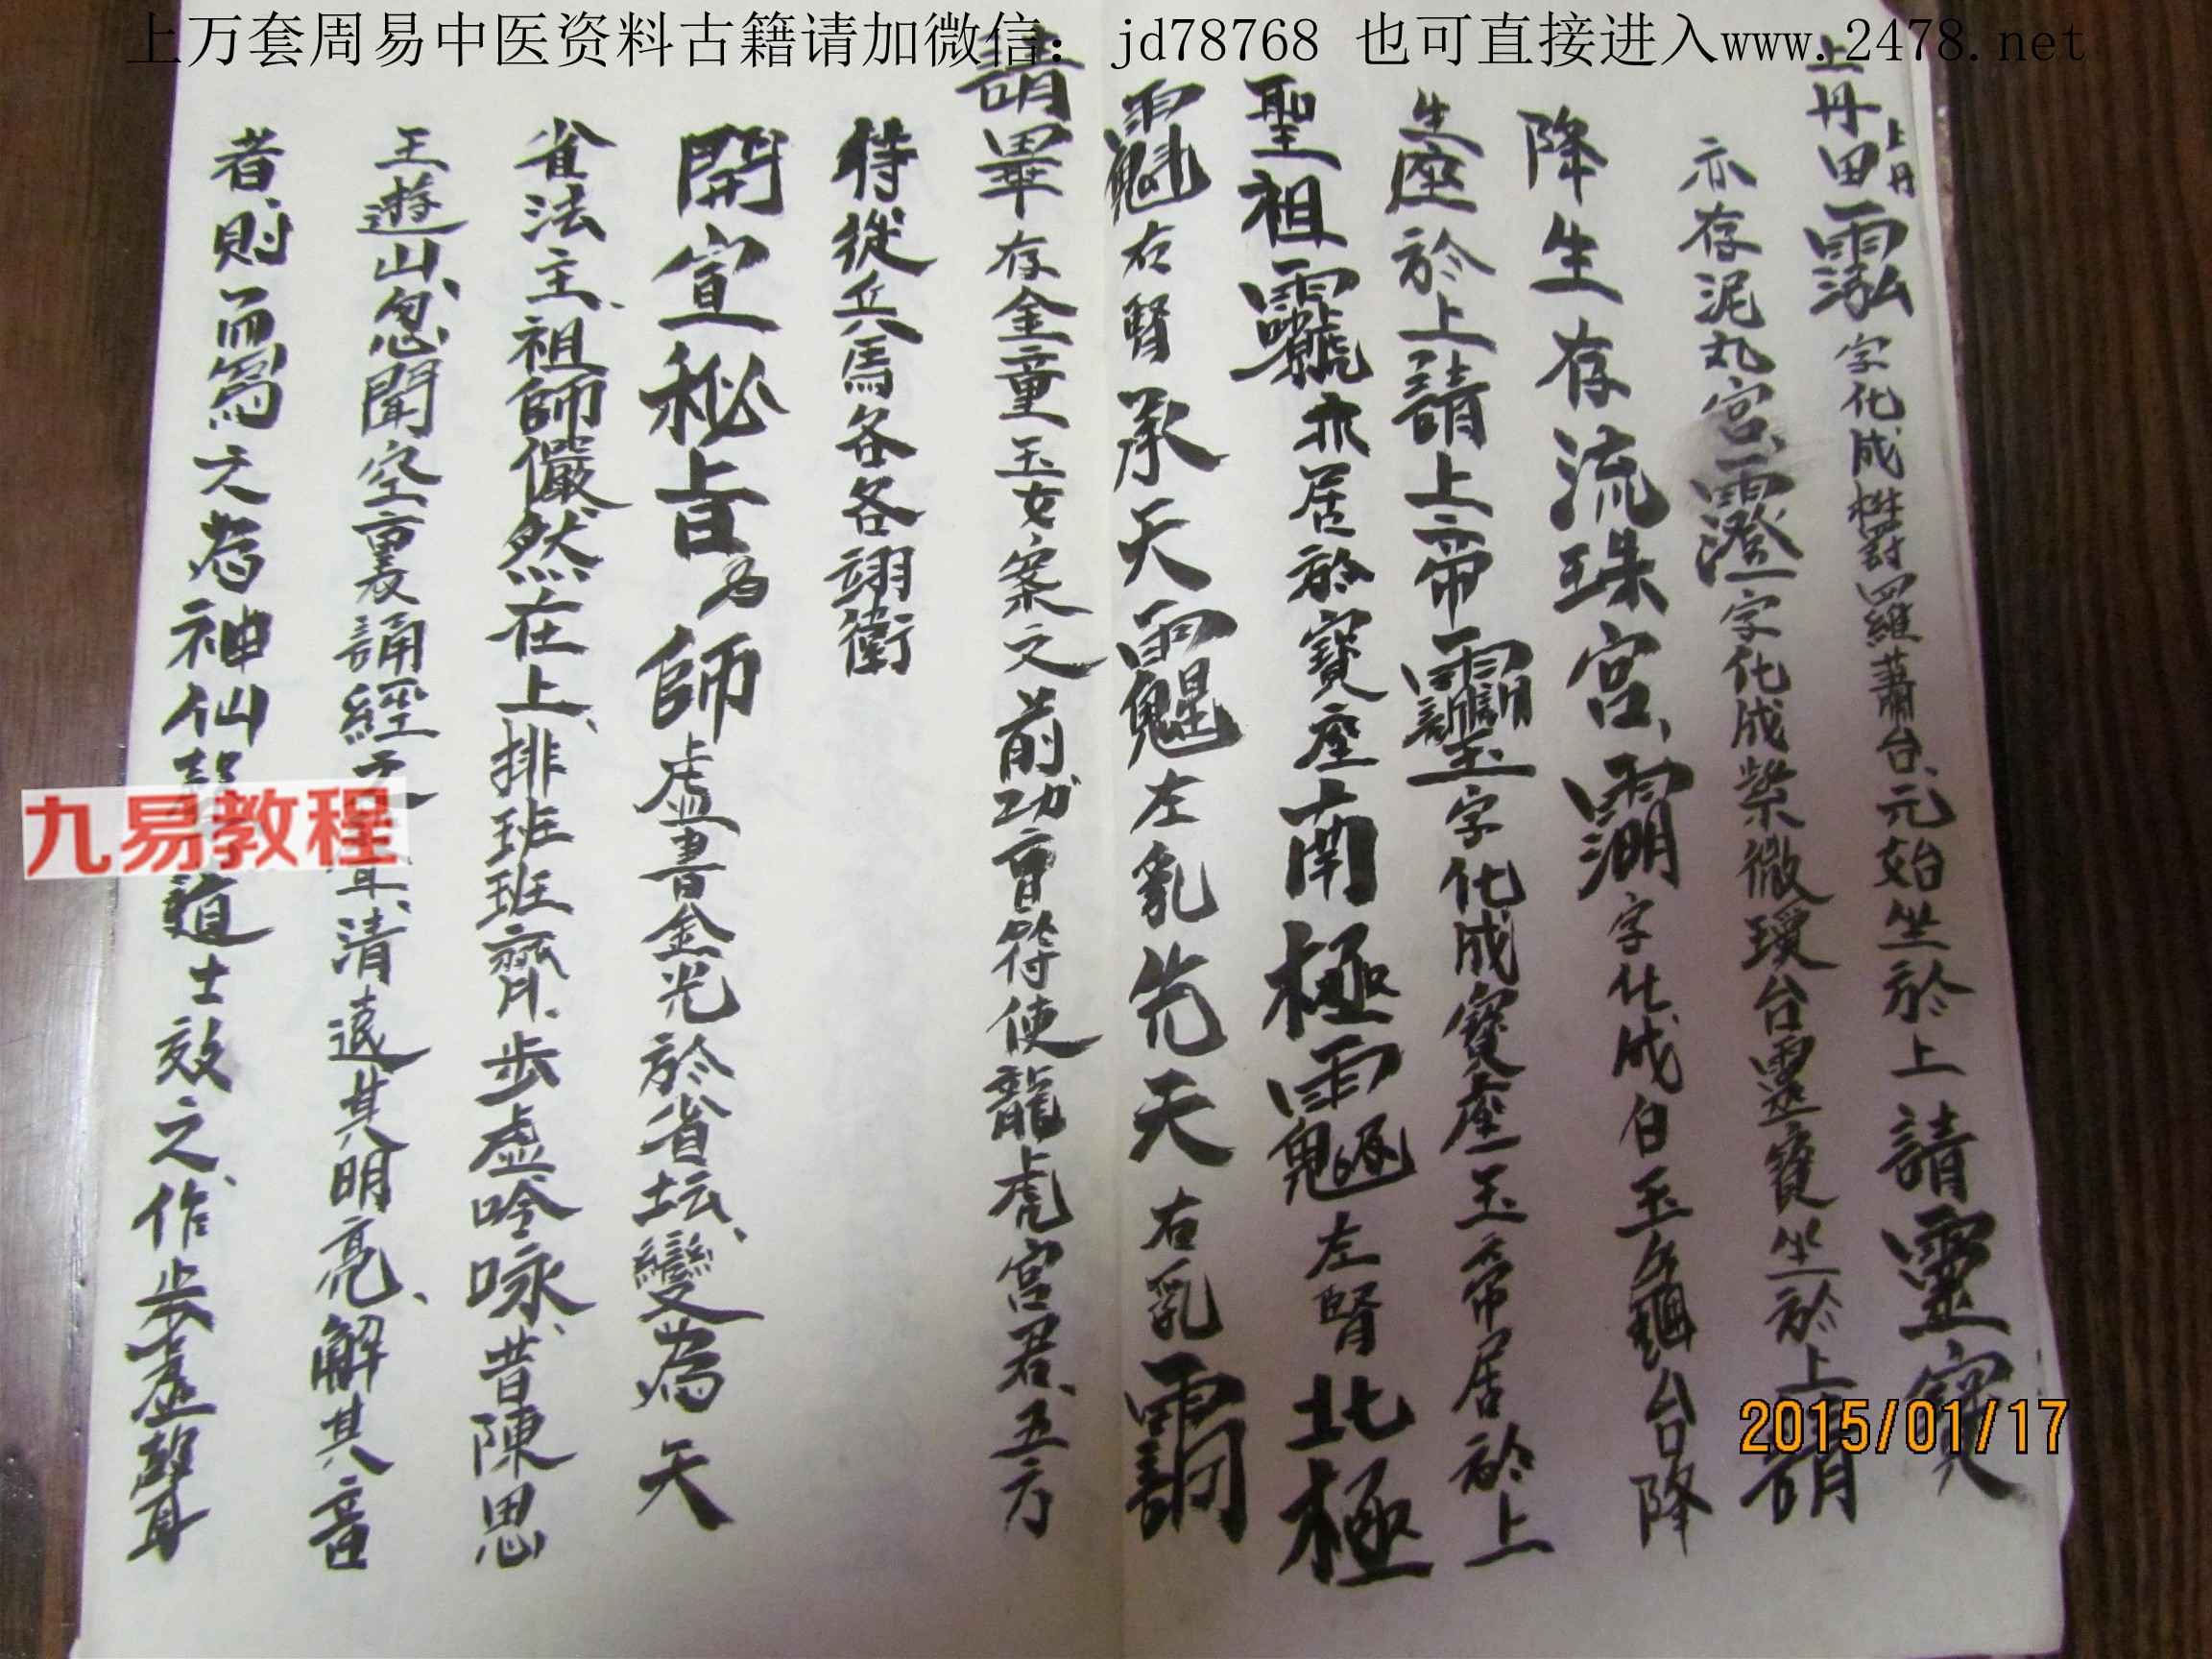 上万套周易中医资料古籍请加微信： jd78768 也可直接进入www.2478.net
上丹田 字化成 四維蕭台、元始坐於上請靈寶
上丹
亦存泥丸宮、䨬字化成紫微 台靈寶坐於上請
降生存流珠宮、 字化成白玉龜台降
生座於上請上帝 字化成寶座玉帝居於上
聖祖 亦居於寶座南極 左腎北極
右腎承天 左乳先天右乳
請畢存金童玉女案之前功曹符使龍虎宮君、五方
侍從兵馬各各翊衛
開宣秘旨為師虛書金光於省坛、變為天
省法主、祖師儼然在上、排班班齊、步虛吟咏、昔陳思
王遊山、忽聞空裏誦經之聲、清遠其明亮、解其音
者、則而寫之為神仙聲道士效之、作步虛聲
九易教程
2015/01/17